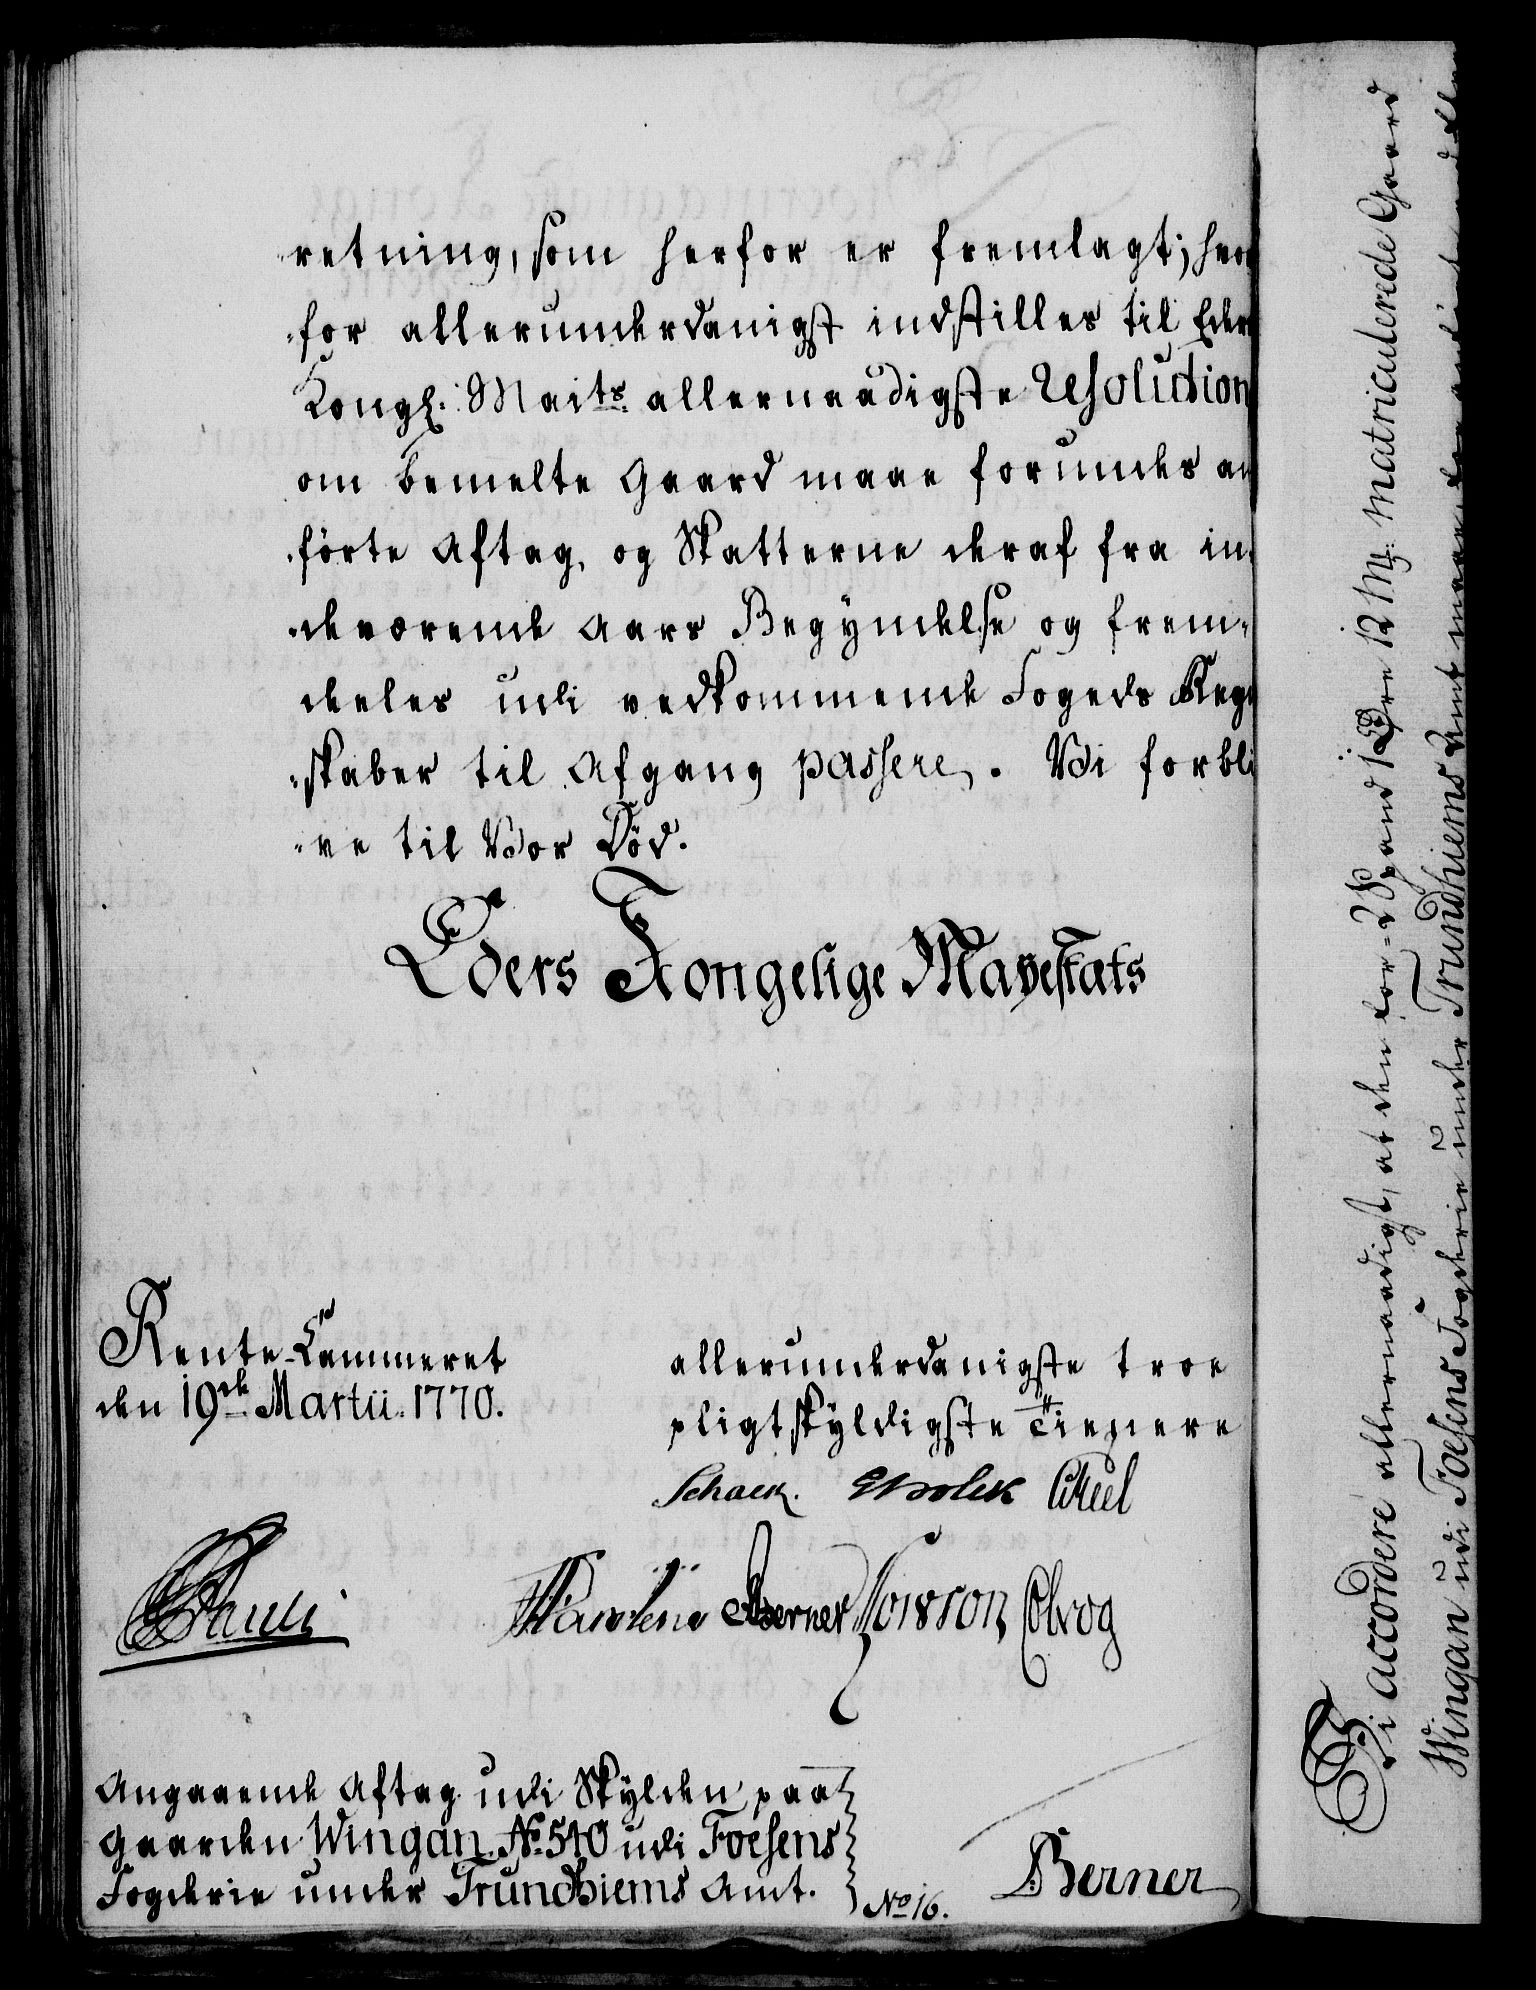 retning, som herfor er fremlagt; hvor
for allerunderdanigst indstilles til Eders
Kongl: Maits allernaadigste Resolution
om bemelte Gaard maae forundes an
förte Aftag, og Skatterne deraf fra in
deværende Aars Begyndelse og frem-
deeles udi vedkommende Fogeds Regn
skaber til Afgang passere. Vi forbli
ve til Vor Död.
Eders Kongelige Mayestæts
Rente-Cammeret
den 19de Martii 1770.
allerunderdanigste troe
pligtskyldigste Tienere
Schack.
Pauli
Berner
Angaaende Aftag udi Skylden paa
Gaarden Wingan No 540 udi Foesens
Fogderie under Trundhiems Amt.
No 16.
Berner
Vi accordere allernaadigst, at den for 2 Spand 1 Öre 12 Mg: matriculerede Gaard
Wingan udi Foesens Fogderie under Trundhiems Amt maae